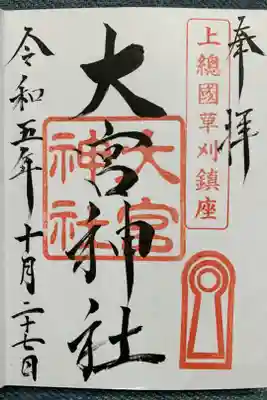 奉拝
上總國草刈鎮座
大宮神社
大宮
神社
令和五年十月二十七日